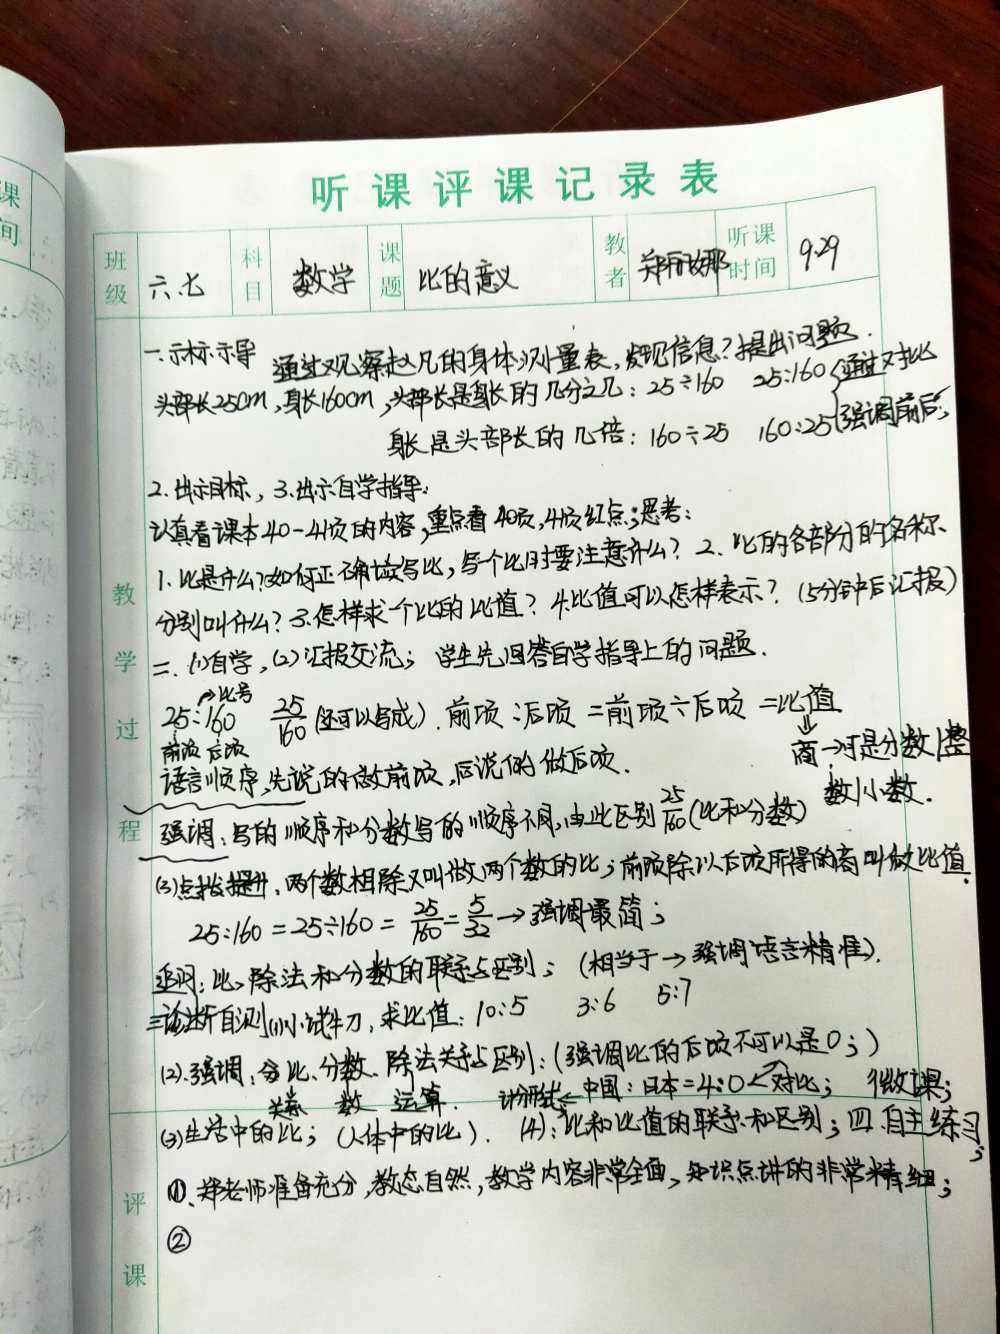 听课评课记录表
班级 六.七 科目 数学 课题 比的意义 教者 郑丽娜 听课时间 9.29
一.示标示导 通过观察赵凡的身体测量表,发现信息?提出问题.
头部长25cm,身长160cm,头部长是身长的几分之几:25÷160 25:160 通过对比
身长是头部长的几倍:160÷25 160:25 强调前后;
2.出示目标,3.出示自学指导:
认真看课本40-41页的内容,重点看40页,41页红点;思考:
1.比是什么?如何正确读写比,写个比时要注意什么?2.比的各部分的名称、
分别叫什么?3.怎样求一个比的比值?4.比值可以怎样表示?(5分钟后汇报)
二.(1)自学,(2)汇报交流; 学生先回答自学指导上的问题.
→比号
25:160 25/160(还可以写成).前项:后项=前项÷后项=比值
前项 后项 ⇓
商→可是分数\整
语言顺序,先说的做前项,后说的做后项. 数\小数.
强调:写的顺序和分数写的顺序不同,由此区别25/160(比和分数)
(3)点拨提升,两个数相除又叫做两个数的比;前项除以后项所得的商叫做比值.
25:160=25÷160=25/160=5/32→强调最简;
追问:比、除法和分数的联系与区别;(相当于→强调语言精准).
三诊断自测(1)小试牛刀,求比值:10:5 3:6 5:7
(2).强调:分比、分数、除法关系与区别:(强调比的后项不可以是0;)
关系 数 运算. 计分形式←中国:日本=4:0←对比; 微课;
(3)生活中的比;(人体中的比).(4):比和比值的联系和区别;四.自主练习;
教学过程
①.郑老师准备充分,教态自然,教学内容非常全面,知识点讲的非常精细;
②
评课
课
间